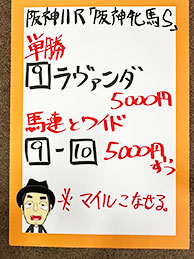 阪神11R「阪神牝馬S」
単勝
9 ラヴァンダ
5000円
馬連とワイド
9-10 5000円
ずつ
※マイルこなせる。